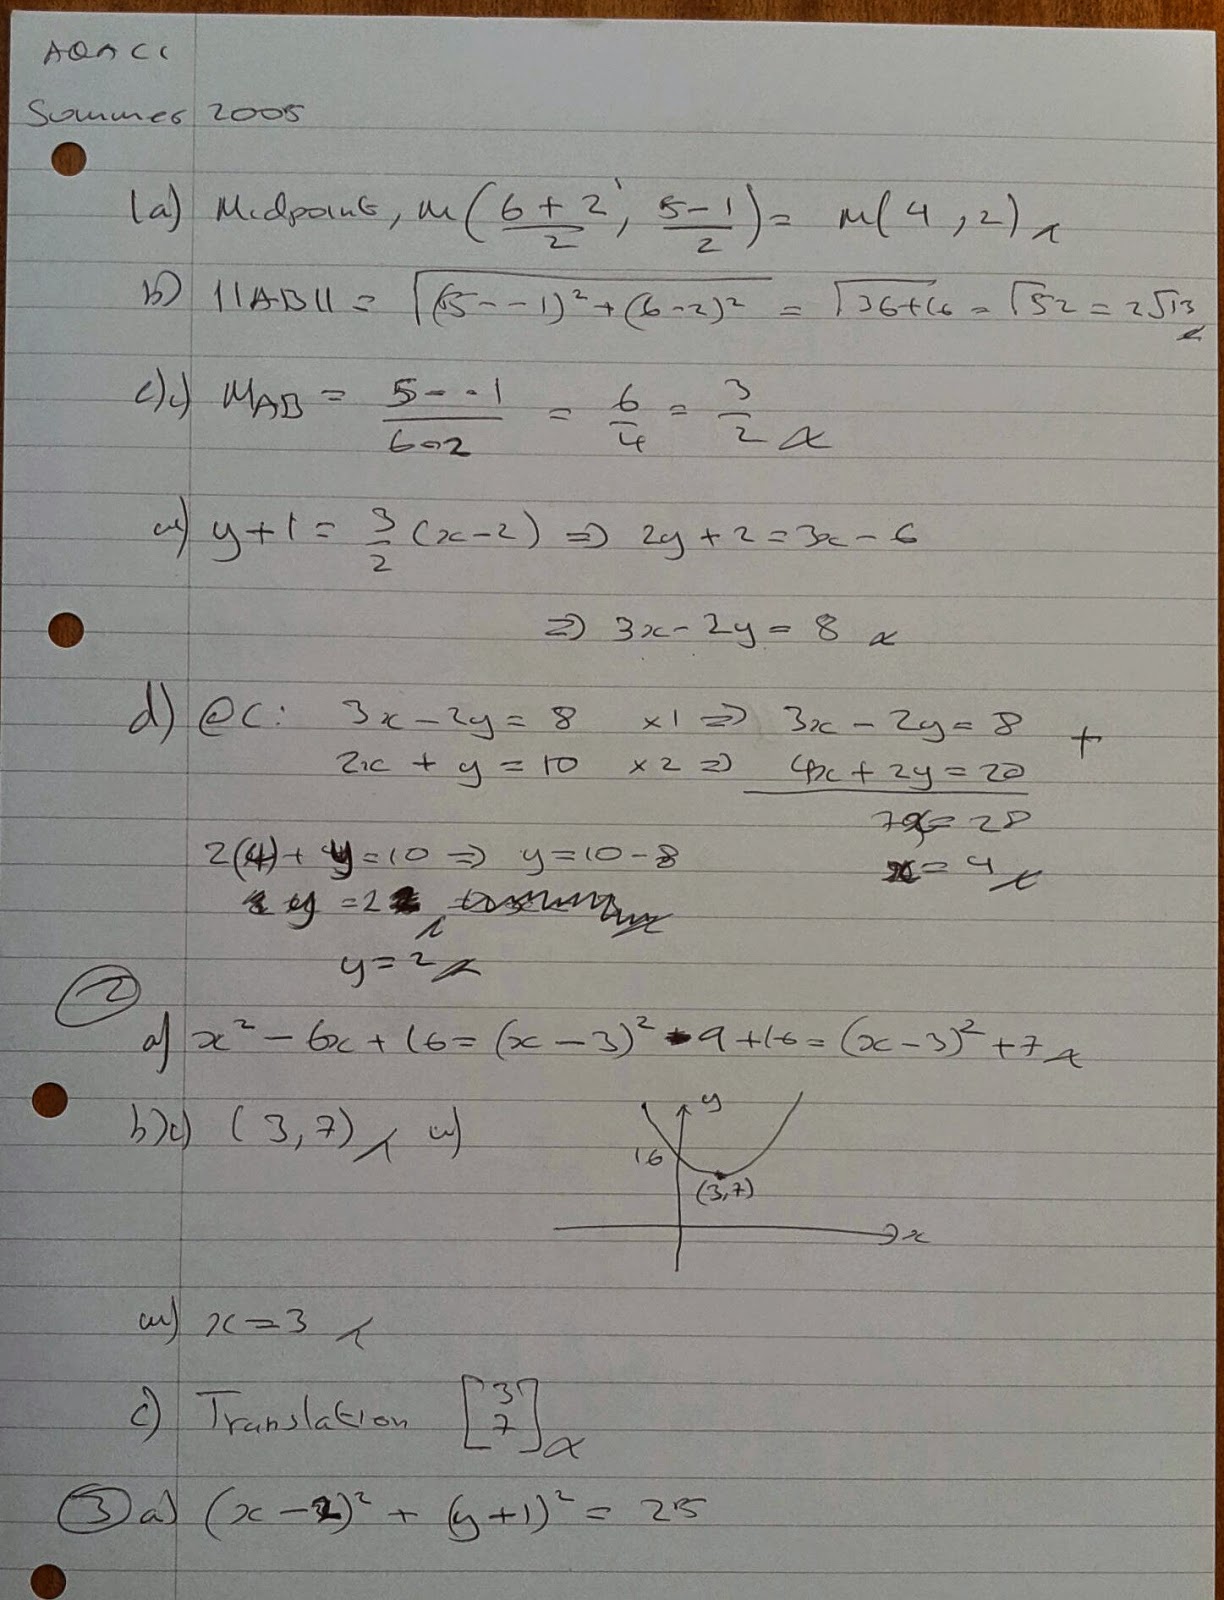 AQA C1
Summer 2005
1a) Midpoint, M(6+2/2, 5-1/2) = M(4,2)
b) ||AB|| = √((5--1)²+(6-2)²) = √36+16 = √52 = 2√13
c)i) M_AB = 5--1/6-2 = 6/4 = 3/2
ii) y+1 = 3/2(x-2) => 2y+2=3x-6
=> 3x-2y=8
d) @C: 3x-2y=8 ×1 => 3x-2y=8 +
2x+y=10 ×2 => 4x+2y=20
7x=28
2(4)+y=10 => y=10-8
x=4
y=2
y=2
2
a) x²-6x+16=(x-3)²-9+16=(x-3)²+7
b)i) (3,7) ii)
y
16
(3,7)
x
iii) x=3
c) Translation [3 7]
3 a) (x-2)²+(y+1)²=25